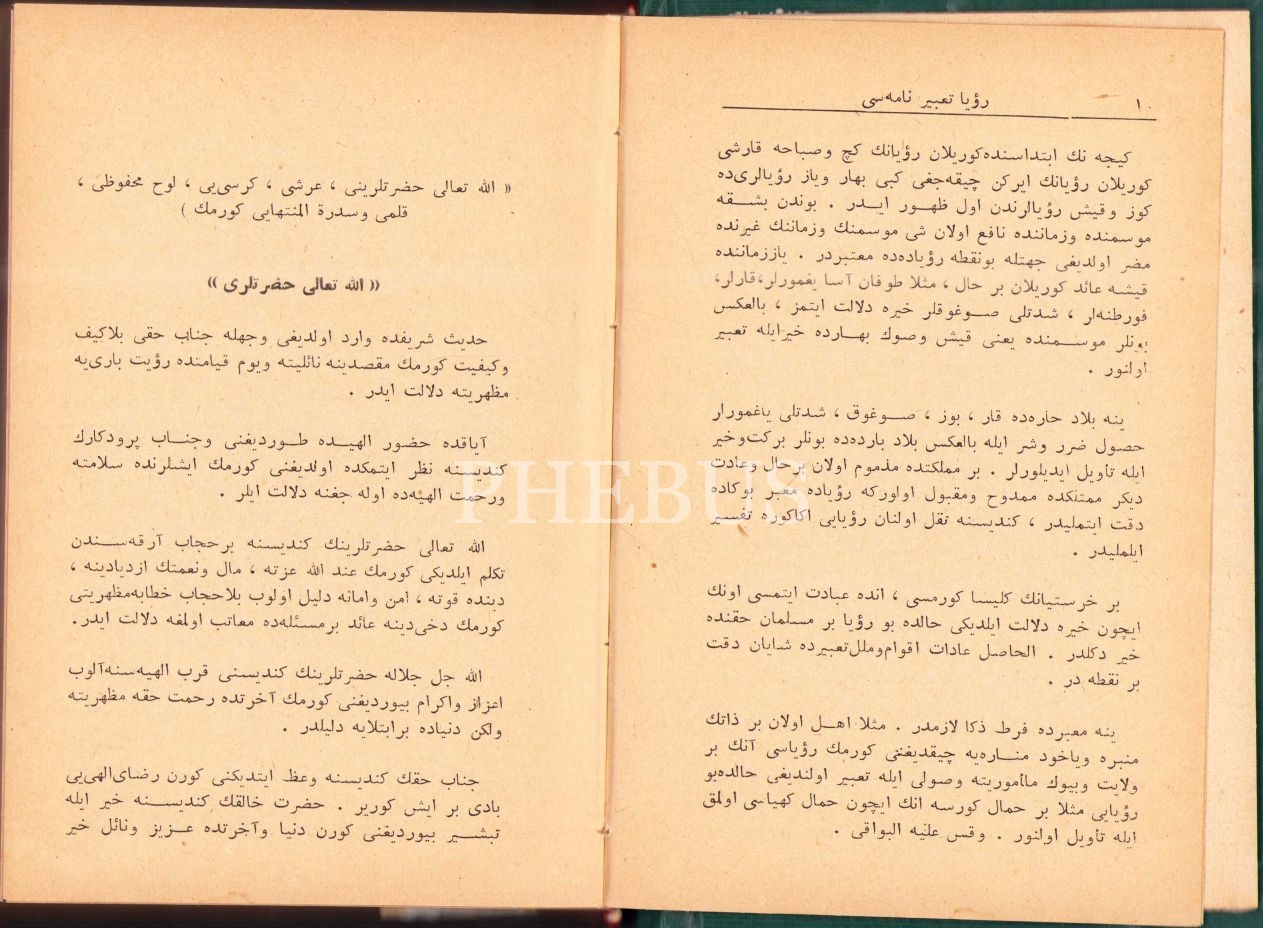 ١٠ رؤيا تعبير نامه‌سی
كيجه نك ابتداسنده كوريلان رؤيانك كچ وصباحه قارشی
كوريلان رؤيانك ايركن چيقه‌جغی كبی بهار وياز رؤيالری‌ده
كوز وقيش رؤيالرندن اول ظهور ايدر . بوندن بشقه
موسمنده وزماننده نافع اولان شی موسمنك وزماننك غيرنده
مضر اولديغی جهتله بونقطه رؤياده‌ده معتبردر . ياززماننده
قيشه عائد كوريلان بر حال ، مثلا طوفان آسا يغمورلر،قارلر،
فورطنه‌لر ، شدتلی صوغوقلر خيره دلالت ايتمز ، بالعكس
بونلر موسمنده يعنی قيش وصوك بهارده خيرايله تعبير
اولنور .
ينه بلاد حاره‌ده قار ، بوز ، صوغوق ، شدتلی ياغمورلر
حصول ضرر وشر ايله بالعكس بلاد بارده‌ده بونلر بركت وخير
ايله تأويل ايديلورلر . بر مملكتده مذموم اولان برحال وعادت
ديكر ممتلكده ممدوح ومقبول اولوركه رؤياده معبر بوكاده
دقت ايتمليدر ، كنديسنه نقل اولنان رؤيايی اكاكوره تفسير
ايلمليدر .
بر خرستيانك كليسا كورمسی ، انده عبادت ايتمسی اونك
ايچون خيره دلالت ايلديكی حالده بو رؤيا بر مسلمان حقنده
خير دكلدر . الحاصل عادات اقوام‌وملل‌تعبيرده شايان دقت
بر نقطه در .
ينه معبرده فرط ذكا لازمدر . مثلا اهل اولان بر ذاتك
منبره وياخود مناره‌يه چيقديغنی كورمك رؤياسی آنك بر
ولايت وبيوك مأموريته وصولی ايله تعبير اولنديغی حالده‌بو
رؤيايی مثلا بر حمال كورسه انك ايچون حمال كهياسی اولمق
ايله تأويل اولنور . وقس عليه البواقی .
« الله تعالی حضرتلرينی ، عرشی ، كرسی‌يی ، لوح محفوظی ،
قلمی وسدرة المنتهايی كورمك )
« الله تعالی حضرتلری »
حديث شريفده وارد اولديغی وجهله جناب حقی بلاكيف
وكيفيت كورمك مقصدينه نائليته ويوم قيامتده رؤيت باری‌يه
مظهريته دلالت ايدر .
آياقده حضور الهيده طورديغنی وجناب پرودكارك
كنديسنه نظر ايتمكده اولديغنی كورمك ايشلرنده سلامته
ورحمت الهيه‌ده اوله جغنه دلالت ايلر .
الله تعالی حضرتلرينك كنديسنه برحجاب آرقه‌سندن
تكلم ايلديكی كورمك عند الله عزته ، مال ونعمتك ازديادينه ،
دينده قوته ، امن وامانه دليل اولوب بلاحجاب خطابه‌مظهريتی
كورمك دخی‌دينه عائد برمسئله‌ده معاتب اولمغه دلالت ايدر.
الله جل جلاله حضرتلرينك كنديسنی قرب الهيه‌سنه‌آلوب
اعزاز واكرام بيورديغنی كورمك آخرتده رحمت حقه مظهريته
ولكن دنياده برابتلايه دليلدر .
جناب حقك كنديسنه وعظ ايتديكنی كورن رضای‌الهی‌يی
بادی بر ايش كورير . حضرت خالقك كنديسنه خير ايله
تبشير بيورديغنی كورن دنيا وآخرتده عزيز ونائل خير
PHEBUS